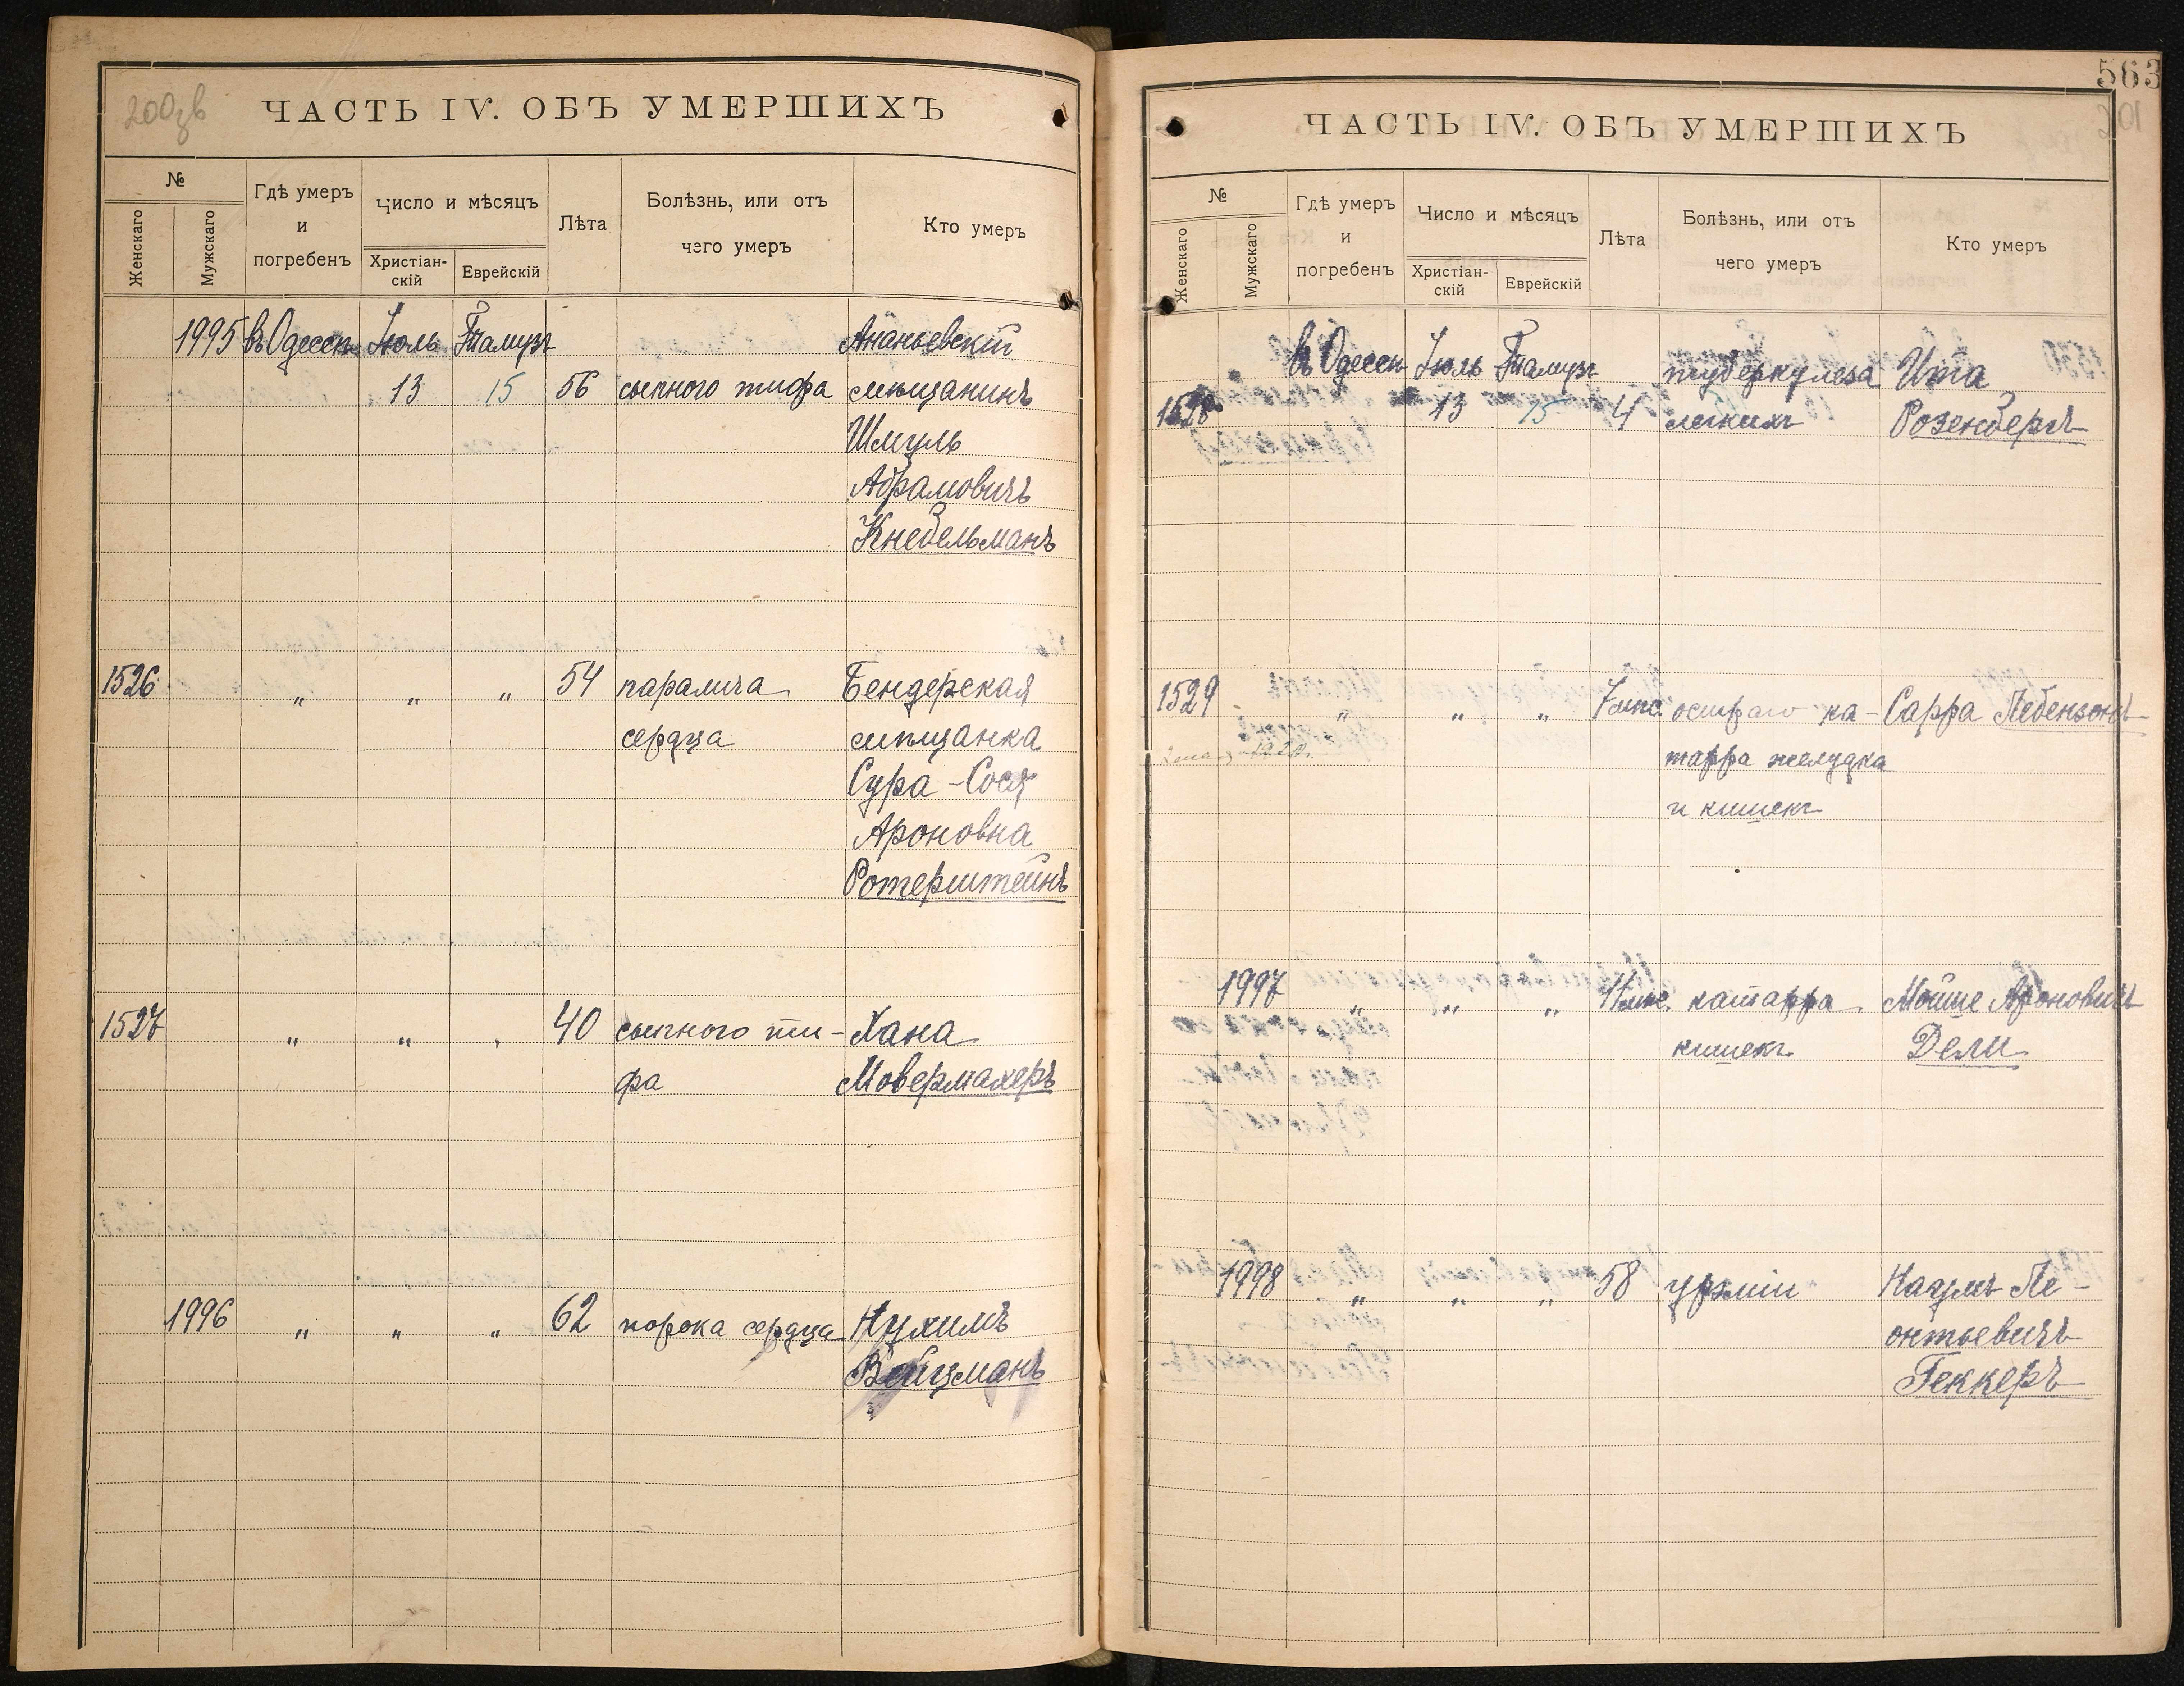 ЧАСТЬ IV. ОБЪ УМЕРШИХЪ
№
Женскаго
Мужскаго
Гдѣ умеръ
и
погребенъ
Число и мѣсяцъ
Христіан-
скій
Еврейскій
Лѣта
Болѣзнь, или отъ
чего умеръ
Кто умеръ
1995 въ Одессѣ Іюль Тамузъ Ананьевскій
13 15 56 сыпного тифа мѣщанинъ
Шмуль
Абрамовичъ
Кнебельманъ
1526 " " " 54 паралича Бендерская
сердца мѣщанка
Сура-Сося
Ароновна
Ротерштейнъ
1527 " " " 40 сыпного ти- Хана
фа Мовермахеръ
1996 " " " 62 порока сердца Нухимъ
Вейцманъ
563
ЧАСТЬ IV. ОБЪ УМЕРШИХЪ
№
Женскаго
Мужскаго
Гдѣ умеръ
и
погребенъ
Число и мѣсяцъ
Христіан-
скій
Еврейскій
Лѣта
Болѣзнь, или отъ
чего умеръ
Кто умеръ
въ Одессѣ Іюль Тамузъ туберкулеза Ита
1528 13 15 4 легкихъ Розенбергъ
1529 " " " 7 мѣс. остраго ка- Сарра Лебензонъ
тарра желудка
и кишекъ
1997 " " " 4 мѣс. катарра Мойше Ароновичъ
кишекъ Дели
1998 " " " 58 урэміи Наумъ Ле-
онтьевичъ
Геккеръ